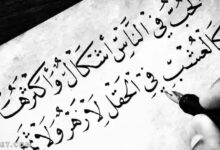 الحب في الناس أشكال وأكثرها
كالعشب في الحقل لا زهر ولا